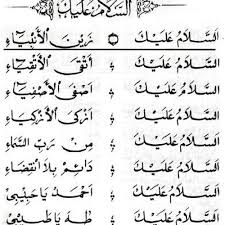 السَّلَامُ عَلَيْكَ
اَلسَّلَامُ عَلَيْكَ زَيْنَ الْأَنْبِيَاءِ
اَلسَّلَامُ عَلَيْكَ أَتْقَى الْأَتْقِيَاءِ
اَلسَّلَامُ عَلَيْكَ أَصْفَى الْأَصْفِيَاءِ
اَلسَّلَامُ عَلَيْكَ أَزْكَى الْأَزْكِيَاءِ
اَلسَّلَامُ عَلَيْكَ مِنْ رَبِّ السَّمَاءِ
اَلسَّلَامُ عَلَيْكَ دَائِمْ بِلَا انْقِضَاءِ
اَلسَّلَامُ عَلَيْكَ أَحْمَدُ يَا حَبِيبِي
اَلسَّلَامُ عَلَيْكَ طٰهٰ يَا طَبِيبِي